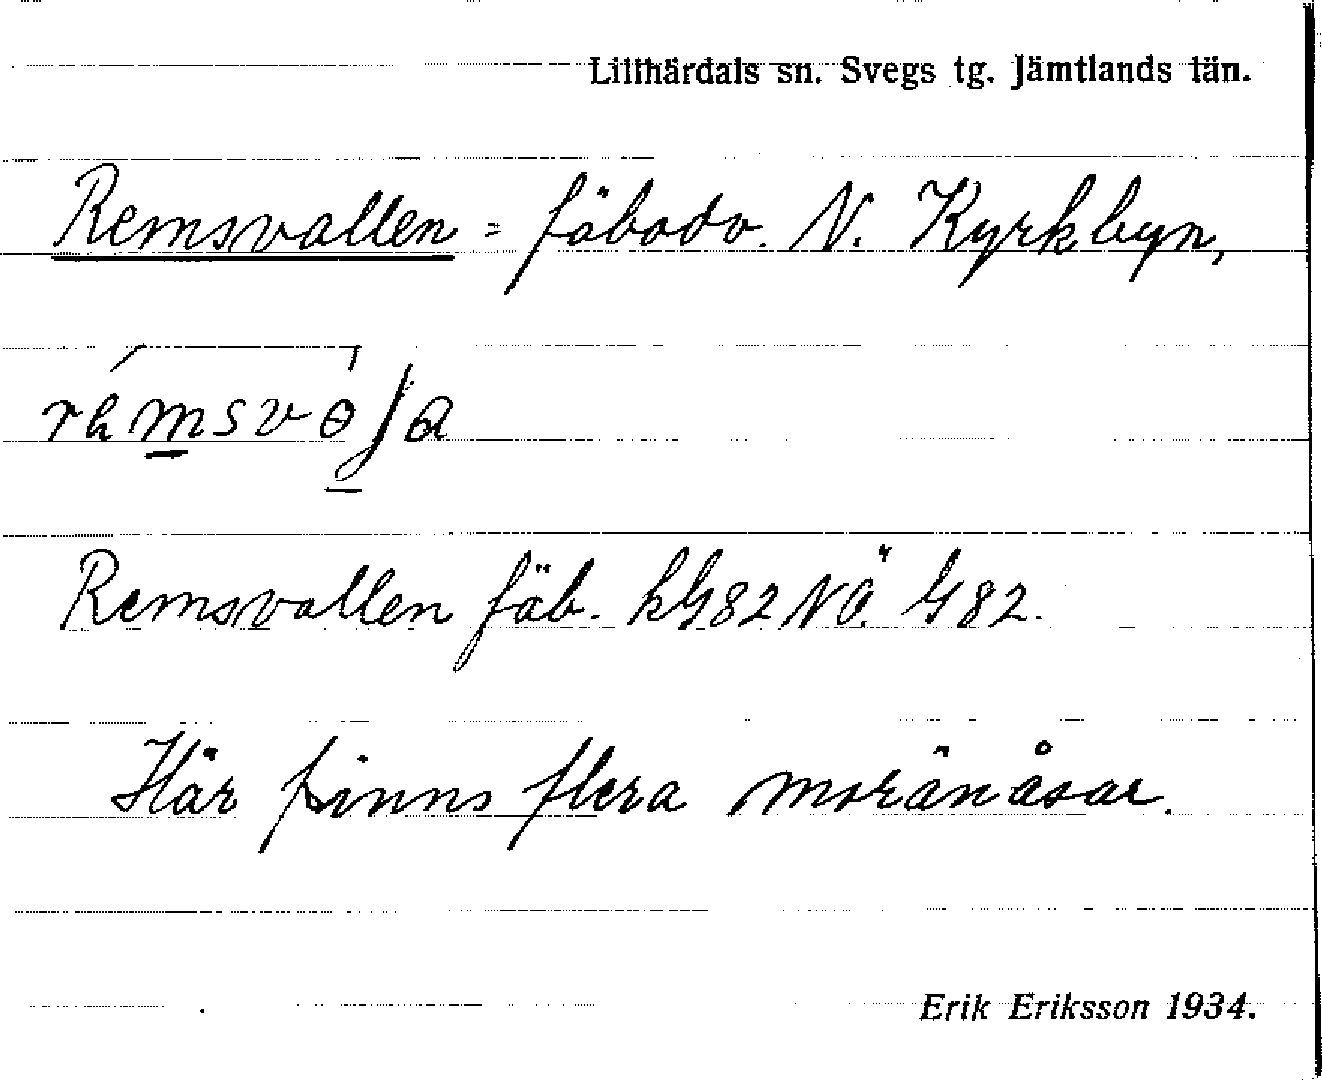 Lillhärdals sn. Svegs tg. Jämtlands län.
Remsvallen = fäbodv. N. Kyrkbyn,
Remsvallen fäb. kG82NÖ. G82.
Här finns flera moränåsar.
Erik Eriksson 1934.